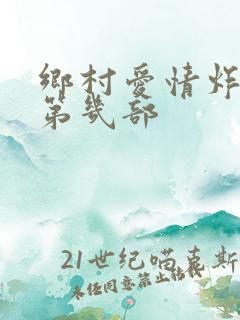 鄉村愛情炸
第幾部
21世纪喵喜斯
未经同意禁止转载